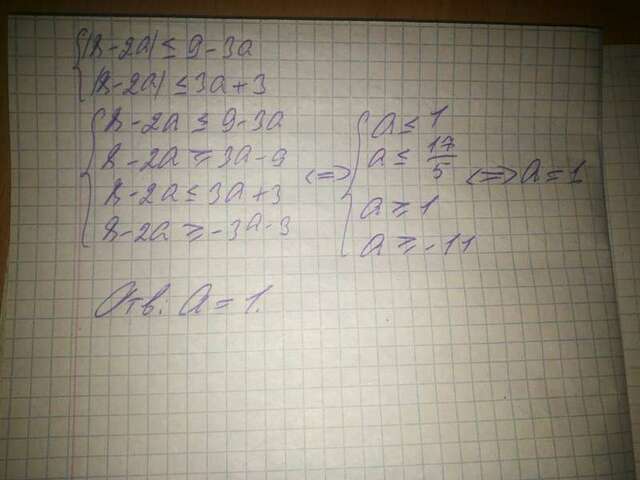 {|8-2a| ≤ 9-3a
|8-2a| ≤ 3a+3
{8-2a ≤ 9-3a
8-2a ≥ 3a-9
8-2a ≤ 3a+3
8-2a ≥ -3a-3
<=> {a ≤ 1
a ≤ 17/5
a ≥ 1
a ≥ -11
<=> a=1
Отв: a=1.